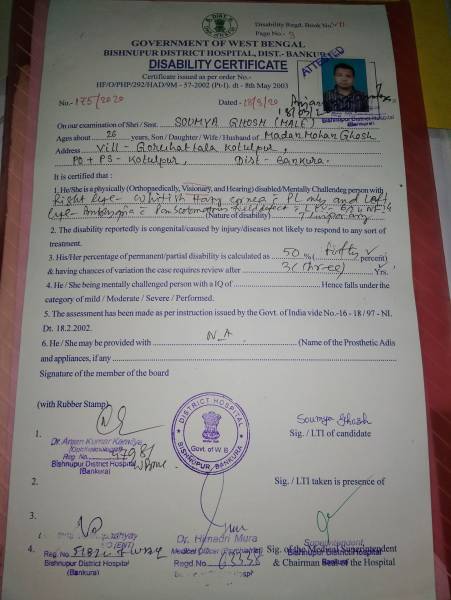 Disability Regd. Book No. VII
Page No. 9
GOVERNMENT OF WEST BENGAL
BISHNUPUR DISTRICT HOSPITAL, DIST.- BANKURA
DISABILITY CERTIFICATE
ATTESTED
Certificate issued as per order No.-
HF/O/PHP/292/HAD/9M - 57-2002 (Pt-I). dt - 8th May 2003
No.- 175/2020
Dated - 18/3/20
Bishnupur District Hospital
(Bankura)
On our examination of Shri / Smt. SOUMYA GHOSH (MALE)
Ages about 26 years, Son / Daughter / Wife / Husband of Madan Mohan Ghosh
Address Vill - Kotulpur,
PO + PS - Kotulpur, Dist - Bankura.
It is certified that
1. He/She is a physically (Orthopaedically, Visionary, and Hearing) disabled/Mentally Challendeg person with
Right eye - Whitish Hazy cornea PL only and Left
eye - (Nature of disability)
2. The disability reportedly is congenital/caused by injury/diseases not likely to respond to any sort of
treatment.
3. His/Her percentage of permanent/partial disability is calculated as 50 % (fifty percent)
& having chances of variation the case requires review after 3 (three) Yrs.
4. He / She being mentally challenged person with a IQ of Hence falls under the
category of mild / Moderate / Severe / Performed.
5. The assessment has been made as per instruction issued by the Govt. of India vide No.-16 - 18 / 97 - NI.
Dt. 18.2.2002.
6. He / She may be provided with N.A (Name of the Prosthetic Adis
and appliances, if any
Signature of the member of the board
(with Rubber Stamp)
DISTRICT HOSPITAL
Govt. of W.B
BISHNUPUR, BANKURA
Soumya Ghosh
1.
Sig. / LTI of candidate
Reg. No.
Bishnupur District Hospital
(Bankura)
2.
Sig. / LTI taken is presence of
3.
(ENT)
Dr. Himadri Mura
Superintendent
4.
Reg. No.
Medical Officer
Sig. of the Medical Superintendent
Bishnupur District Hospital
(Bankura)
Regd No
& Chairman of the Hospital